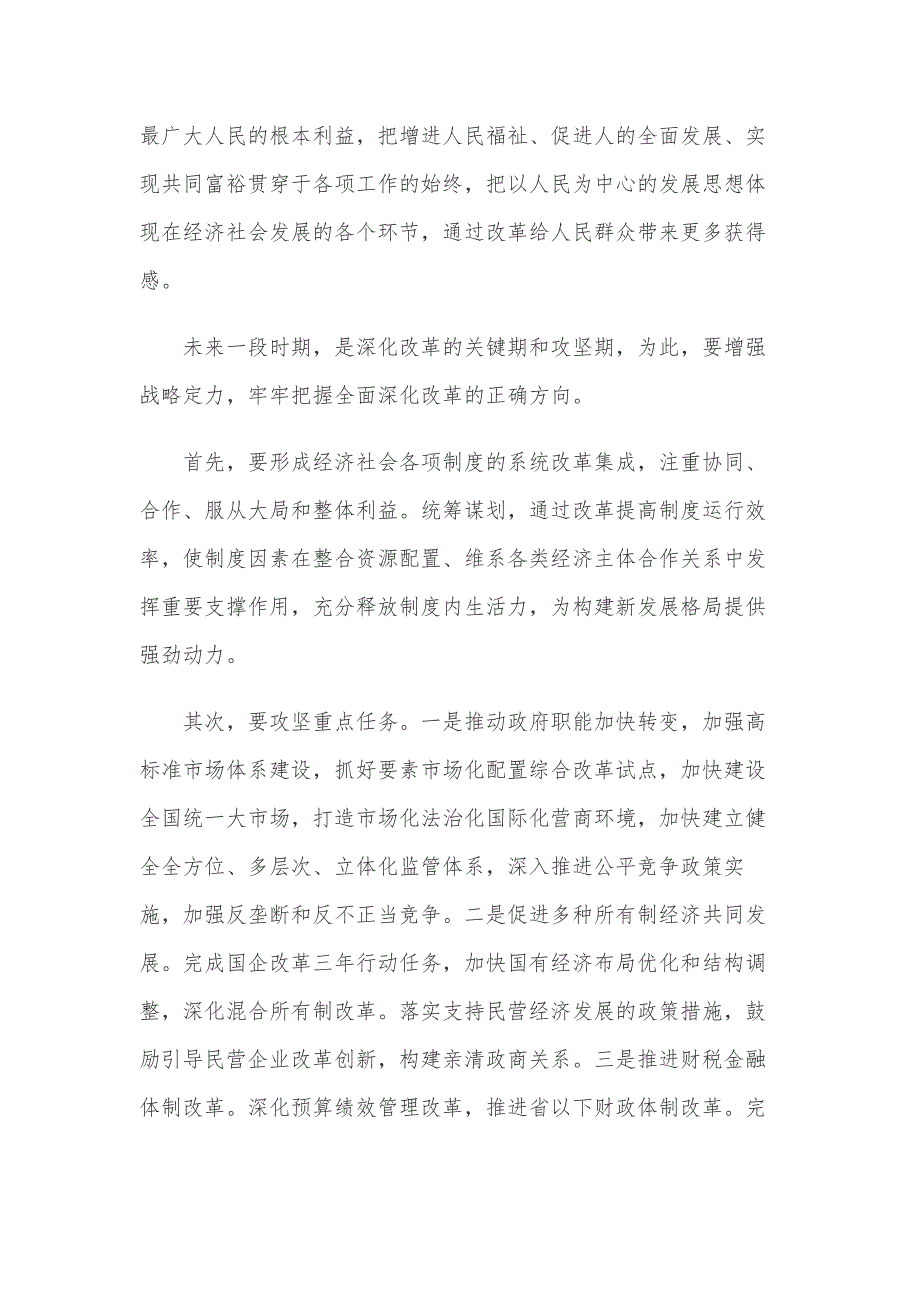 最广大人民的根本利益，把增进人民福祉、促进人的全面发展、实
现共同富裕贯穿于各项工作的始终，把以人民为中心的发展思想体
现在经济社会发展的各个环节，通过改革给人民群众带来更多获得
感。
未来一段时期，是深化改革的关键期和攻坚期，为此，要增强
战略定力，牢牢把握全面深化改革的正确方向。
首先，要形成经济社会各项制度的系统改革集成，注重协同、
合作、服从大局和整体利益。统筹谋划，通过改革提高制度运行效
率，使制度因素在整合资源配置、维系各类经济主体合作关系中发
挥重要支撑作用，充分释放制度内生活力，为构建新发展格局提供
强劲动力。
其次，要攻坚重点任务。一是推动政府职能加快转变，加强高
标准市场体系建设，抓好要素市场化配置综合改革试点，加快建设
全国统一大市场，打造市场化法治化国际化营商环境，加快建立健
全全方位、多层次、立体化监管体系，深入推进公平竞争政策实
施，加强反垄断和反不正当竞争。二是促进多种所有制经济共同发
展。完成国企改革三年行动任务，加快国有经济布局优化和结构调
整，深化混合所有制改革。落实支持民营经济发展的政策措施，鼓
励引导民营企业改革创新，构建亲清政商关系。三是推进财税金融
体制改革。深化预算绩效管理改革，推进省以下财政体制改革。完